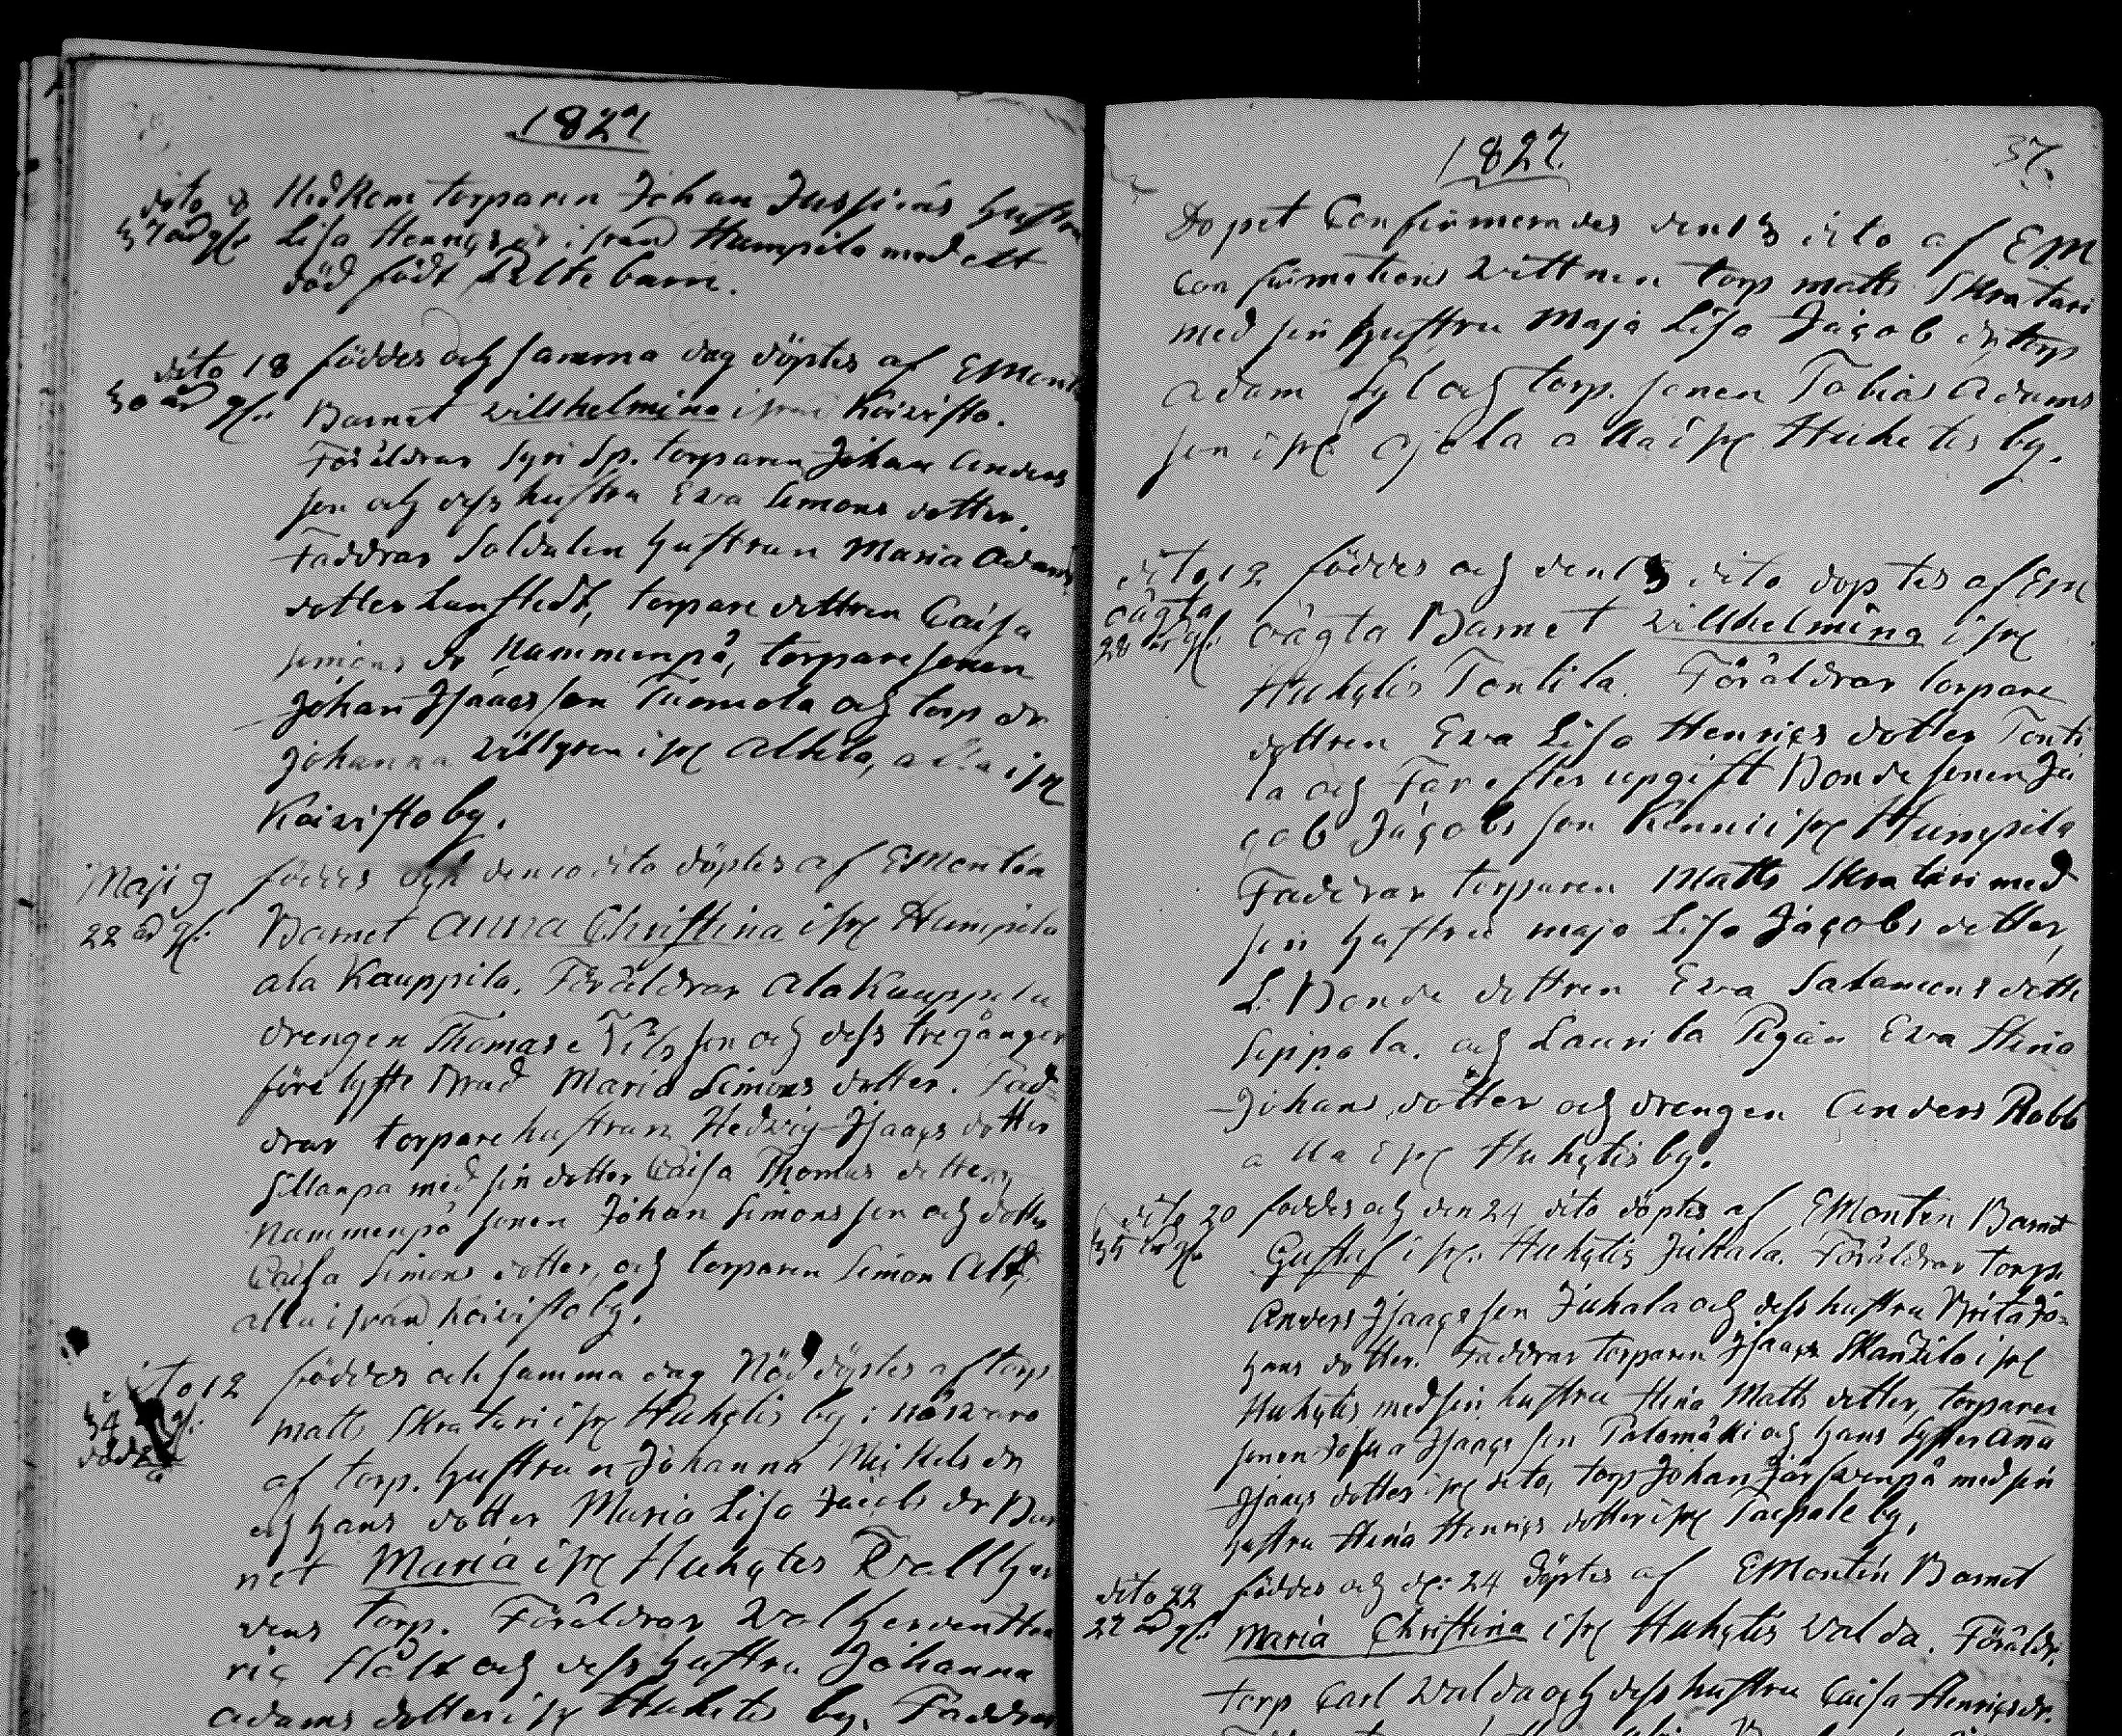 1827
dito 8 Nedkom torparen Johan Jussiens hustru
37 år gl: Lisa Henrigs dr ifrån Humpila med ett
död födt Piltebarn.
dito 18 föddes och samma dag döptes af EMontin
30 år gl: Barnet Willhelmina ifrån Koivisto.
Föräldrar Sp. torparen Johan Anders
son och dess hustru Eva Simons dotter.
Faddrar Soldaten hustrun Maria Adams
dotter Lunstedt, torpare dottren Caisa
Simons dr Nummenpä, torpare sonen
Johan Isaacsson Tuomola och torp dr
Johanna Villgren ifr Alhila, alla ifr
Koivisto by.
Maji 9 föddes och den 10 dito döptes af EMontin
22 år gl: Barnet Anna Christina ifr Humpila
ala Kauppila. Föräldrar Ala Kauppila
drengen Thomas Nilsson och dess tregånger
före lyste Brud Maria Simons dotter. Fad-
drar torpare hustrun Hedvig Isaacs dotter
Sillanpä med sin dotter Caisa Thomas dotter,
Nummenpä sonen Johan Simonsson och dotter
Caisa Simons dotter, och torparen Simon Alt,
alla ifrån Koivisto by.
dito 12 föddes och samma dag Nöddöptes af torp
34 gl: matts Skratari ifr Huhtis by i närvaro
död af torp. hustrun Johanna Mickels dr
och hans dotter Maria Lisa Jacobs dr Bar
net Maria ifr Huhtis Vallher
dens Torp. Föräldrar Valherden Hen
ric Stålt och dess hustru Johanna
Adams dotter ifr Huhtis by. Faddrar
1827. 37.
Dopet Confirmerades den 13 dito af EM
Confirmations Vittnen torp matts Skratari
med sin hustru Maja Lisa Jacobs dr, torp
Adam Syl och torp. sonen Tobias Adams
son ifr Ojala alla ifr Huhtis by.
dito 12 föddes och den 13 dito döptes af EM
oägta
28 år gl: oägta Barnet Willhelmina ifr
Huhtis Tontila. Föräldrar torpare
dottren Eva Lisa Henrigs dotter Tonti
la och Far efter upgift Bonde sonen Ja
cob Jacobsson Kenni ifr Humpila
Faddrar torparen Matts Skratari med
sin hustru maja Lisa Jacobs dotter,
L: Bonde dottren Eva Salamons dotte
Seppala. och Laurila Pigan Eva Stina
Johans dotter och drengen Anders Rabb
alla ifr Huhtis by.
dito 20 föddes och den 24 dito döptes af EMontin Barnet
35 år gl: Gustaf ifr: Huhtis Juhala. Föräldrar torp.
Anders Isaacsson Juhala och dess hustru Brita Jo-
hans dotter. Faddrar torparen Isaac Skanzila ifr
Huhtis med sin hustru Stina Matts dotter, torpare
sonen Josua Isaacsson Palomäki och hans Syster Anna
Isaacs dotter ifr dito, torp Johan Järfvenpä med sin
hustru Stina Henrigs dotter ifr Taipale by.
dito 22 föddes och d: 24 döptes af EMontin Barnet
27 år gl: Maria Christina ifr Huhtis Valda. Föräldr.
torp Carl Valda och dess hustru Caisa Henrigs dr.